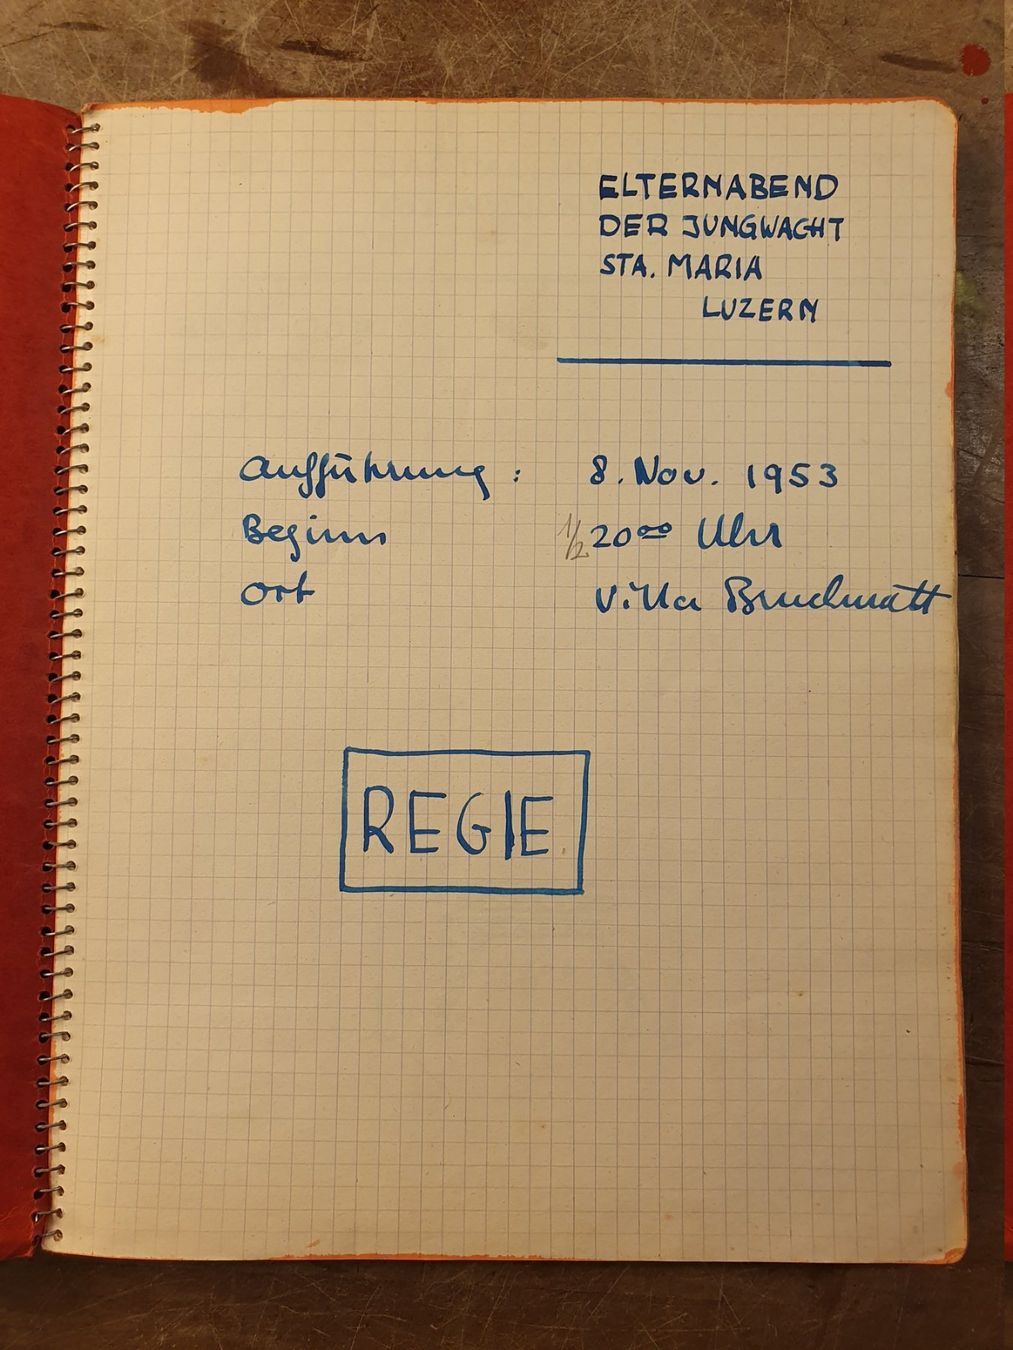 ELTERNABEND
DER JUNGWACHT
STA. MARIA
LUZERN
Aufführung : 8. Nov. 1953
Beginn 1/2 20⁰⁰ Uhr
Ort Villa Bruchmatt
REGIE